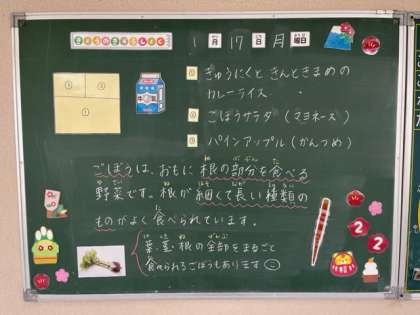 きょうのきゅうしょく
1月17日月曜日
① ぎゅうにくときんときまめの
カレーライス
② ごぼうサラダ(マヨネーズ)
③ パインアップル(かんづめ)
ごぼうは、おもに根の部分を食べる
野菜です。根が細くて長い種類の
ものがよく食べられています。
葉・茎・根の全部をまるごと
食べられるごぼうもあります